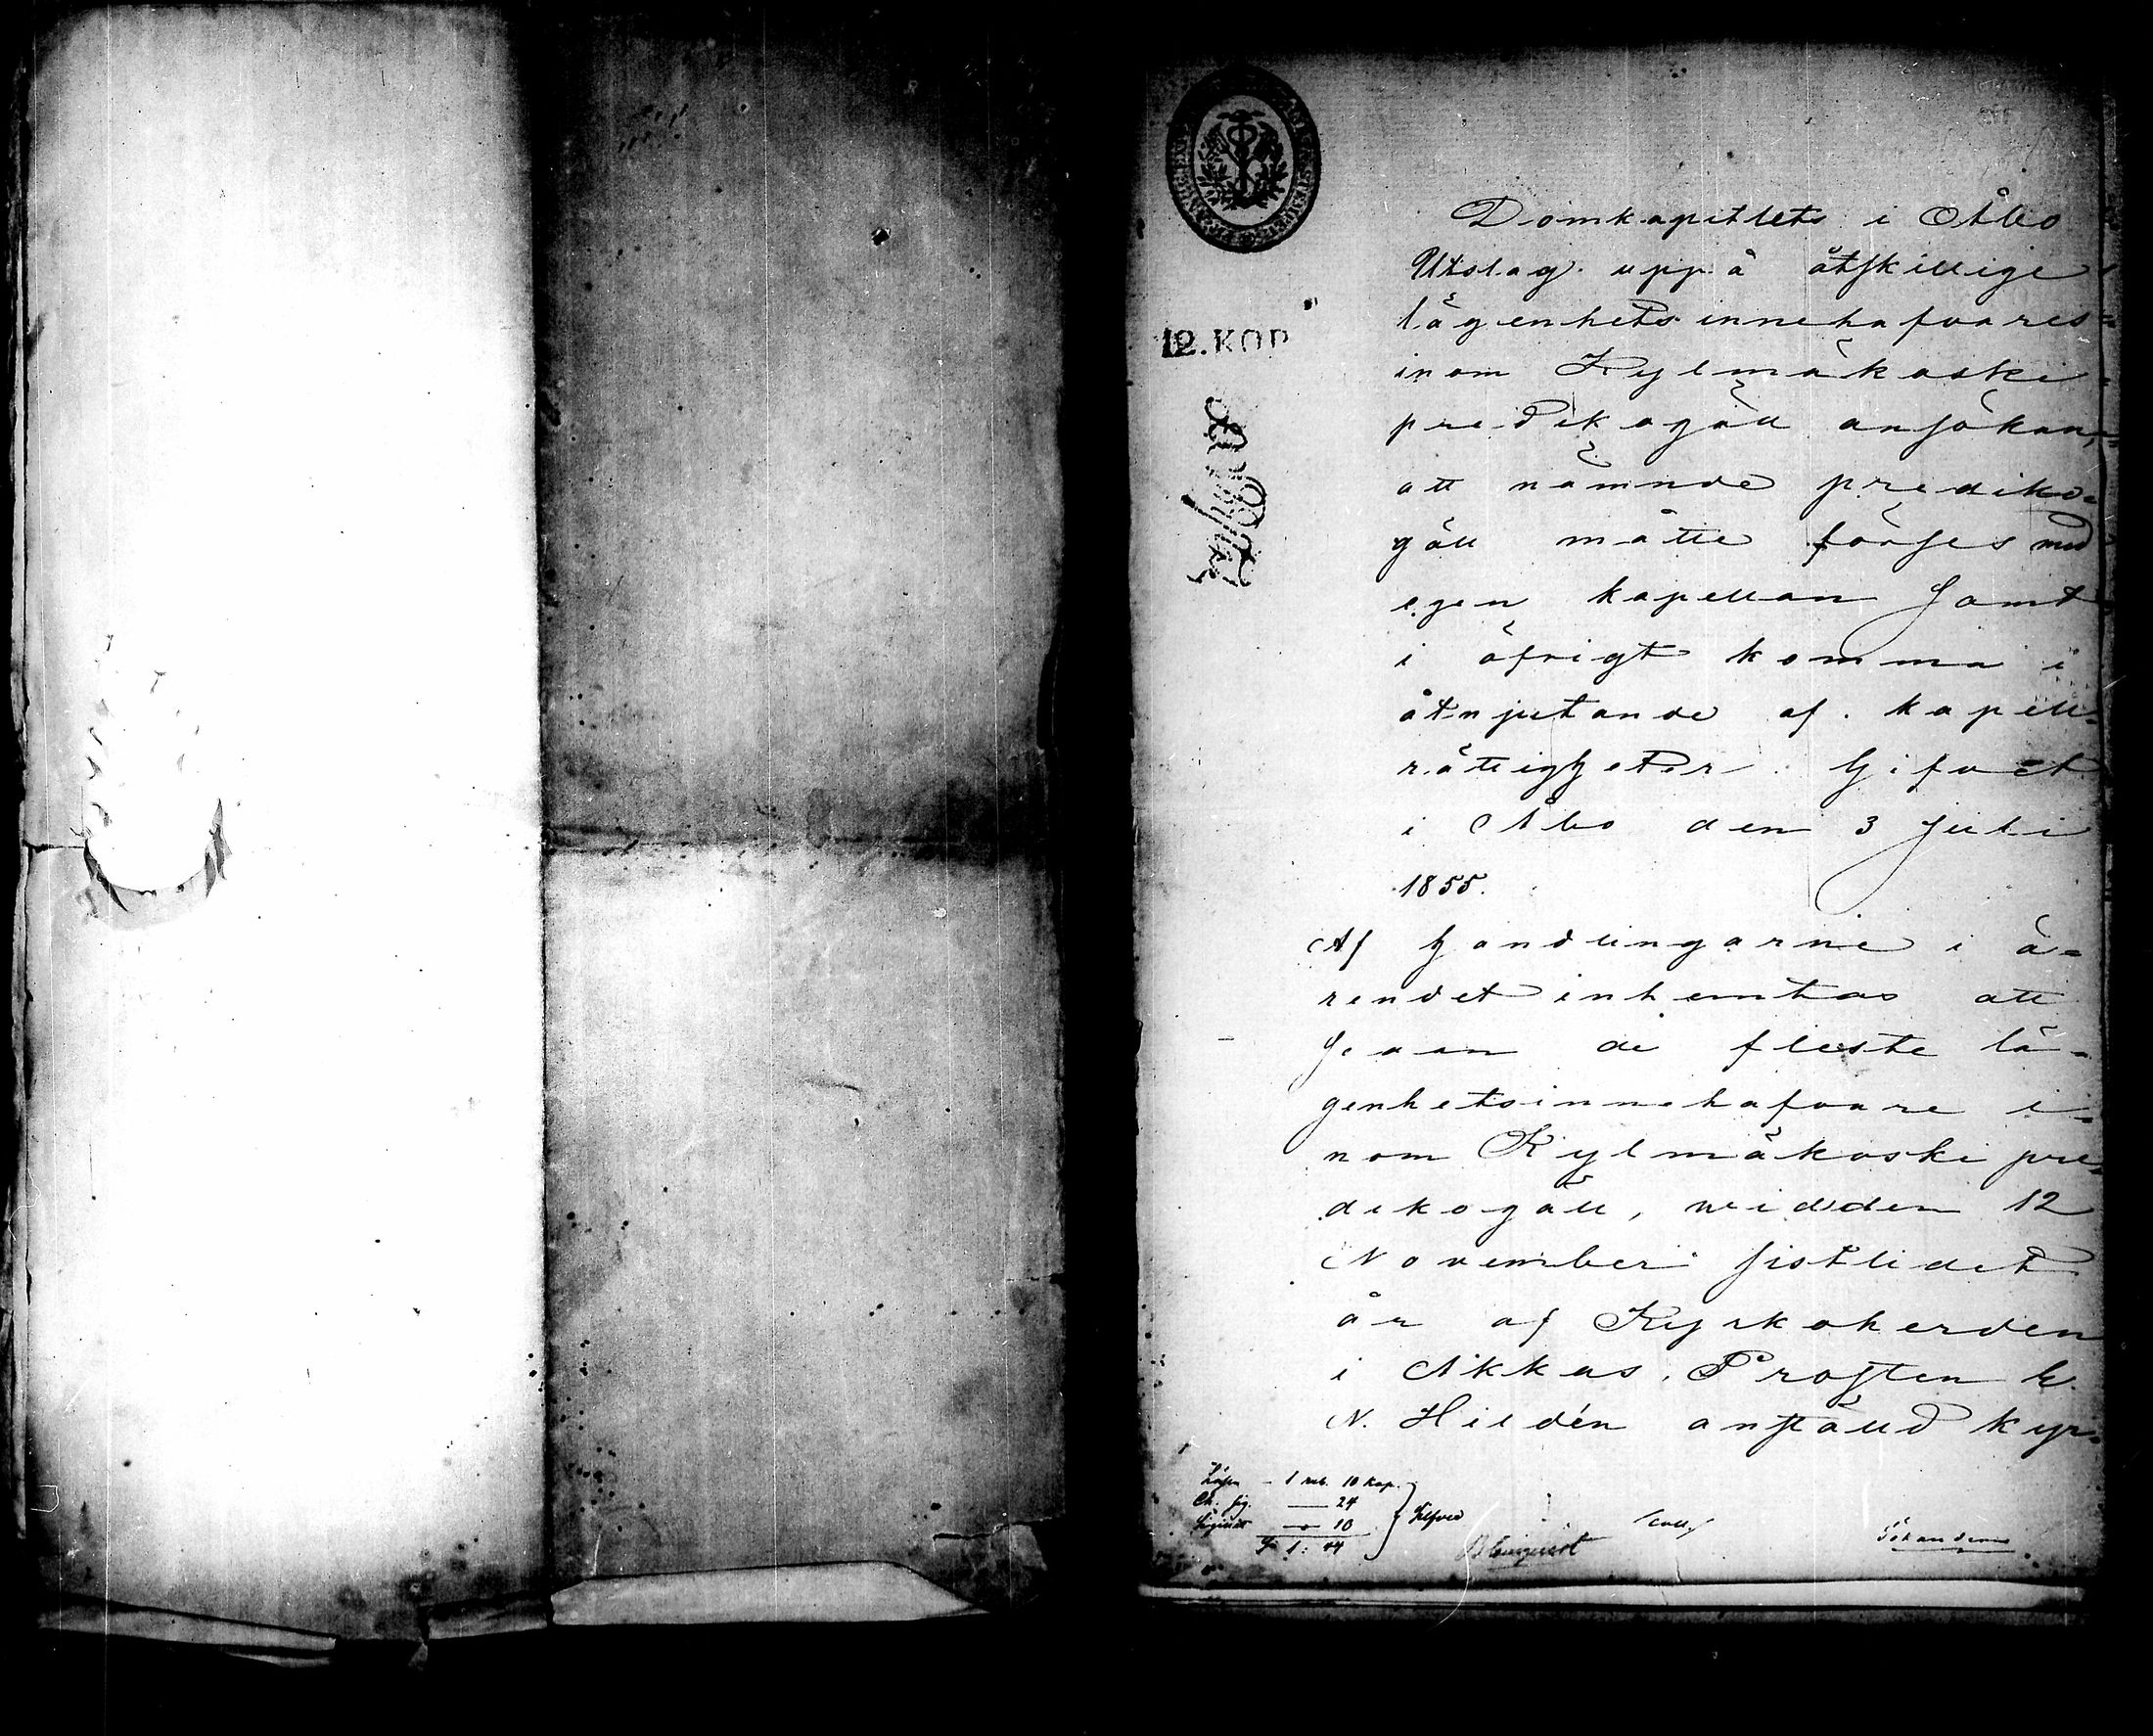 12.KOP
Domkapitlets i Åbo
Utslag uppå åtskillige
lägenhetsinnehafvares
inom Kylmäkoski
predikogäll ansökan,
att nämnde prediko=
gäll måtte förses med
egen kapellan samt
i öfrigt komma i
åtnjutande af kapell=
rättigheter. Gifvet
i Åbo den 3 Juli
1855.
Af handlingarne i ä=
rendet inhemtas att
sedan de fleste lä=
genhetsinnehafvare i=
nom Kylmäkoski pre=
dikogäll, widden 12
November sistlidet
år af Kyrkoherden
i Akkas, Prosten G.
N. Hildén anställd kyr=
Lösen - 1 rub. 10 kop.
Ch. sig. — 24
— 10
S:a 1: 44
Blomqvist
Sökandene